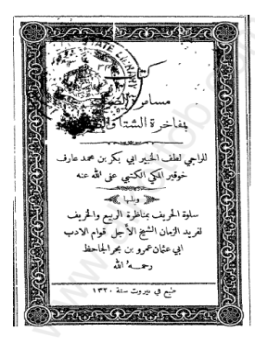 كتاب
مسامرة الضيف
بمفاخرة الشتا والصيف
للراجي لطف الخبير ابي بكر بن محمد عارف
خوقير المكي الكتبي عفى الله عنه
ويليها
سلوة الحريف بمناظرة الربيع والخريف
لفريد الزمان الشيخ الأجل قوام الادب
ابي عثمان عمرو بن بحر الجاحظ
رحمه الله
طبع في بيروت سنة ١٣٢٠